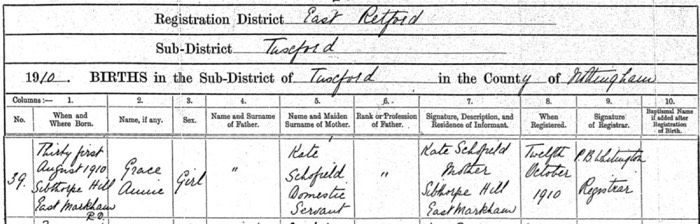 Registration District East Retford
Sub-District Tuxford
1910. BIRTHS in the Sub-District of Tuxford in the County of Nottingham
Columns :— 1. 2. 3. 4. 5. 6. 7. 8. 9. 10.
No. When and Where Born. Name, if any. Sex. Name and Surname of Father. Name and Maiden Surname of Mother. Rank or Profession of Father. Signature, Description, and Residence of Informant. When Registered. Signature of Registrar. Baptismal Name if added after Registration of Birth.
39. Thirty first August 1910 Sibthorpe Hill East Markham R.D. Grace Annie Girl " Kate Schofield Domestic Servant " Kate Schofield Mother Sibthorpe Hill East Markham Twelfth October 1910 P B Registrar